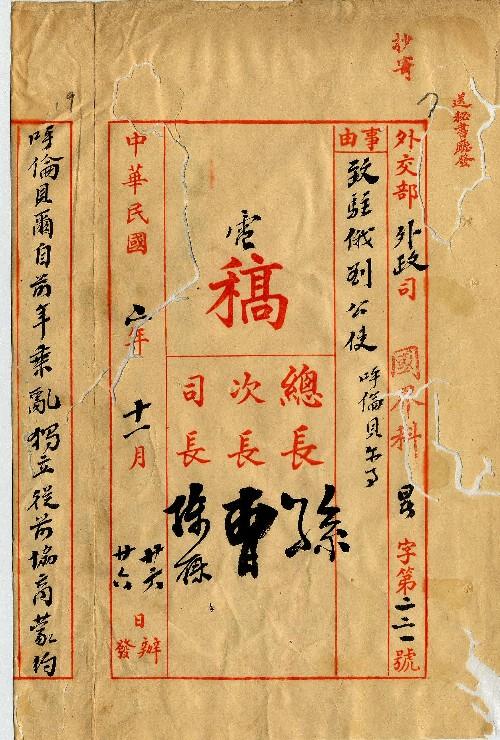 抄寄
送秘書廳發
外交部外政司國界科 字第二三一號
事由
致駐俄劉公使 呼倫貝尔事
電稿
總長 孫
次長 曹
司長 陳
中華民國二年十一月廿六日辦
廿六日發
呼倫貝爾自前年乘亂獨立從前協商蒙約